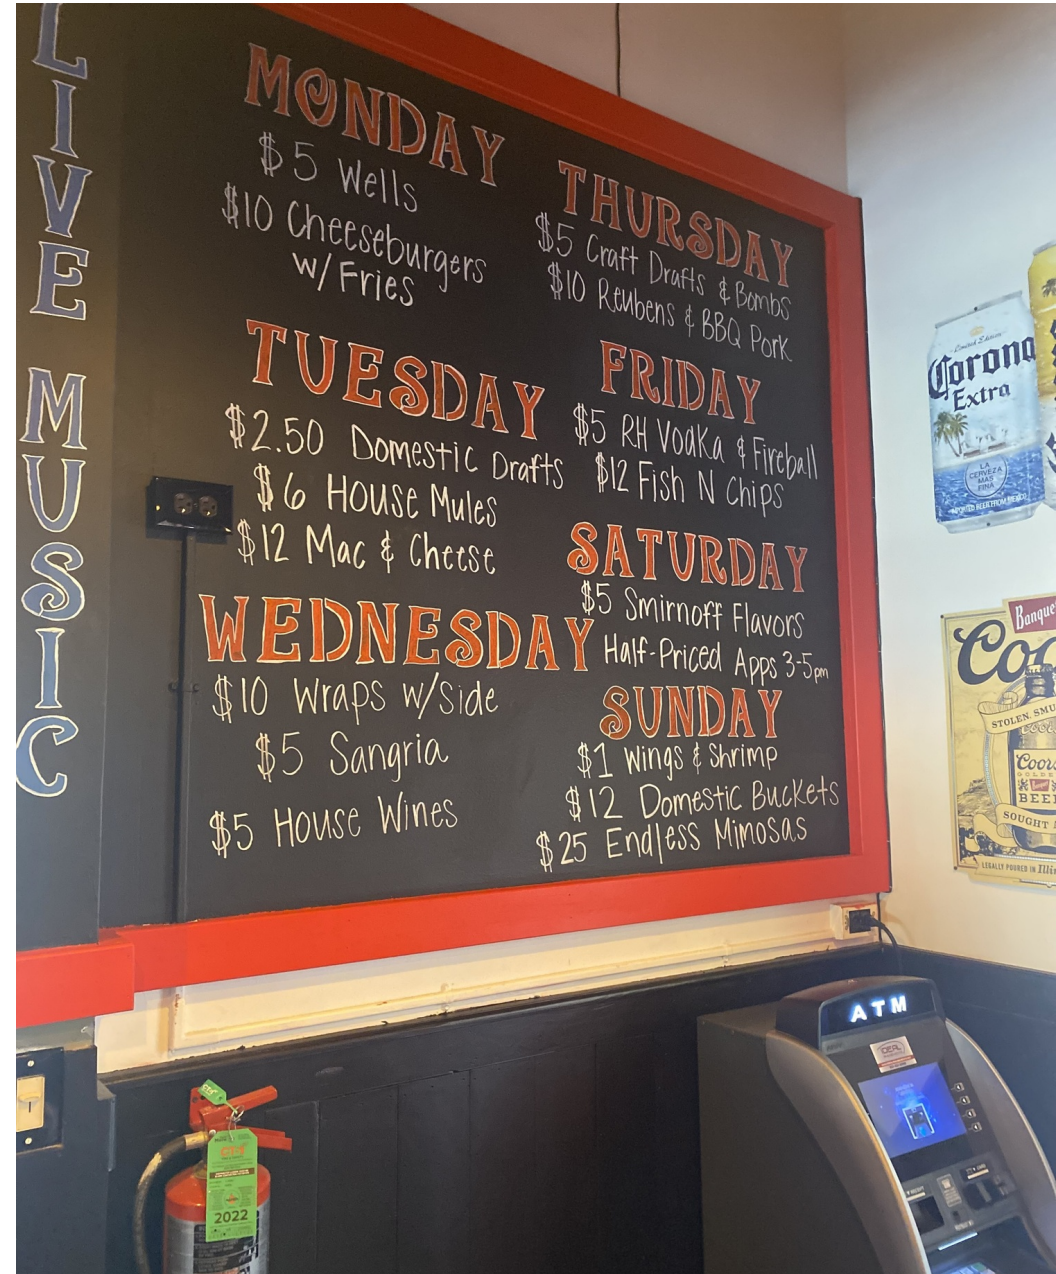 LIVE MUSIC
MONDAY
$5 Wells
$10 Cheeseburgers
w/ Fries
TUESDAY
$2.50 Domestic Drafts
$6 House Mules
$12 Mac & Cheese
WEDNESDAY
$10 Wraps w/Side
$5 Sangria
$5 House Wines
THURSDAY
$5 Craft Drafts & Bombs
$10 Reubens & BBQ Pork
FRIDAY
$5 RH Vodka & Fireball
$12 Fish N Chips
SATURDAY
$5 Smirnoff Flavors
Half-Priced Apps 3-5pm
SUNDAY
$1 Wings & Shrimp
$12 Domestic Buckets
$25 Endless Mimosas
Limited Edition
Corona
Extra
LA
CERVEZA
MAS
FINA
IMPORTED BEER FROM MEXICO
Banque
Coo
STOLEN. SMU
Coors
GOLDEN
BEER
SOUGHT
LEGALLY POURED IN Illi
ATM
2022